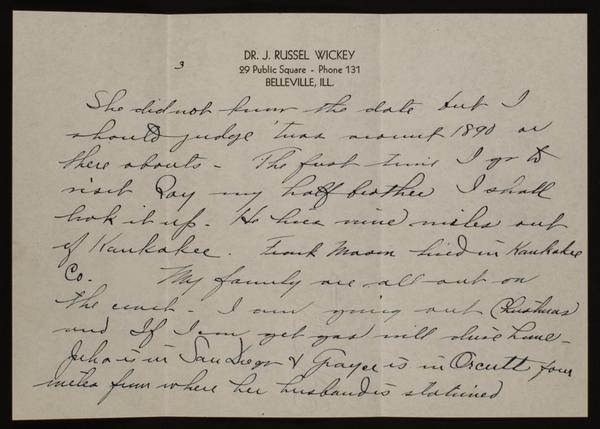 3
DR. J. RUSSEL WICKEY
29 Public Square - Phone 131
BELLEVILLE, ILL.
She did not know the date but I
should judge 'twas around 1890 or
there abouts - The first time I go to
visit Ray my half brother I shall
look it up. He lives nine miles out
of Kankakee. Frank Mason lived in Kankakee
Co. My family are all out on
the coast - I am going out Christmas
and If I can get gas will drive home -
is in San Diego & is in Orcutt four
miles from where her husband is stationed